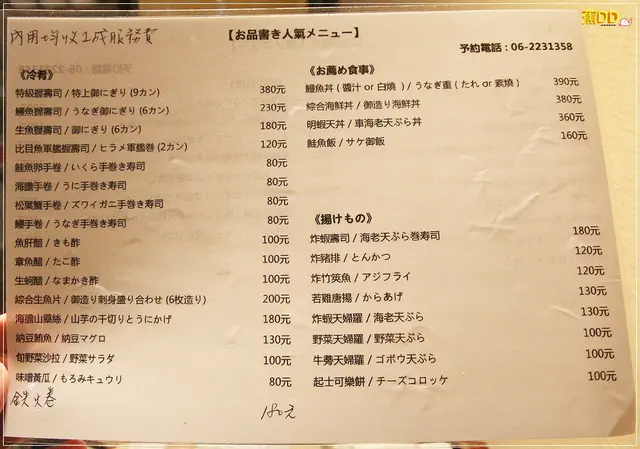 內用均收1成服務費
【お品書き人氣メニュー】
予約電話：06-2231358
《冷肴》
特級握壽司 / 特上御にぎり (9カン) 380元
鰻魚握壽司 / うなぎ御にぎり (6カン) 230元
生魚握壽司 / 御にぎり (6カン) 180元
比目魚軍艦握壽司 / ヒラメ軍艦巻 (2カン) 120元
鮭魚卵手卷 / いくら手巻き寿司 80元
海膽手卷 / うに手巻き寿司 80元
松葉蟹手卷 / ズワイガニ手巻き寿司 80元
鰻手卷 / うなぎ手巻き寿司 80元
魚肝醋 / きも酢 100元
章魚醋 / たこ酢 100元
生蚵醋 / なまかき酢 100元
綜合生魚片 / 御造り刺身盛り合わせ (6枚造り) 200元
海膽山藥絲 / 山芋の千切りとうにかけ 180元
納豆鮪魚 / 納豆マグロ 130元
旬野菜沙拉 / 野菜サラダ 100元
味噌黃瓜 / もろみキュウリ 80元
鉄火巻 180元
《お薦め食事》
鰻魚丼 ( 醬汁 or 白燒 ) / うなぎ重 ( たれ or 素燒 ) 390元
綜合海鮮丼 / 御造り海鮮丼 380元
明蝦天丼 / 車海老天ぷら丼 360元
鮭魚飯 / サケ御飯 160元
《揚げもの》
炸蝦壽司 / 海老天ぷら巻寿司 180元
炸豬排 / とんかつ 120元
炸竹筴魚 / アジフライ 120元
若雞唐揚 / からあげ 130元
炸蝦天婦羅 / 海老天ぷら 130元
野菜天婦羅 / 野菜天ぷら 100元
牛蒡天婦羅 / ゴボウ天ぷら 100元
起士可樂餅 / チーズコロッケ 100元